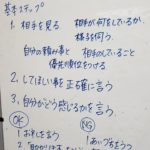 基本ステップ
1. 相手を見る 相手が何をしているか、
様子を伺う.
自分の頼み事と 相手のしていること
優先順位をつける
2. してほしい事を正確に言う
3. 自分がどう感じるかを言う.
OK NG
1 お礼を言う 1 あいづちをうつ